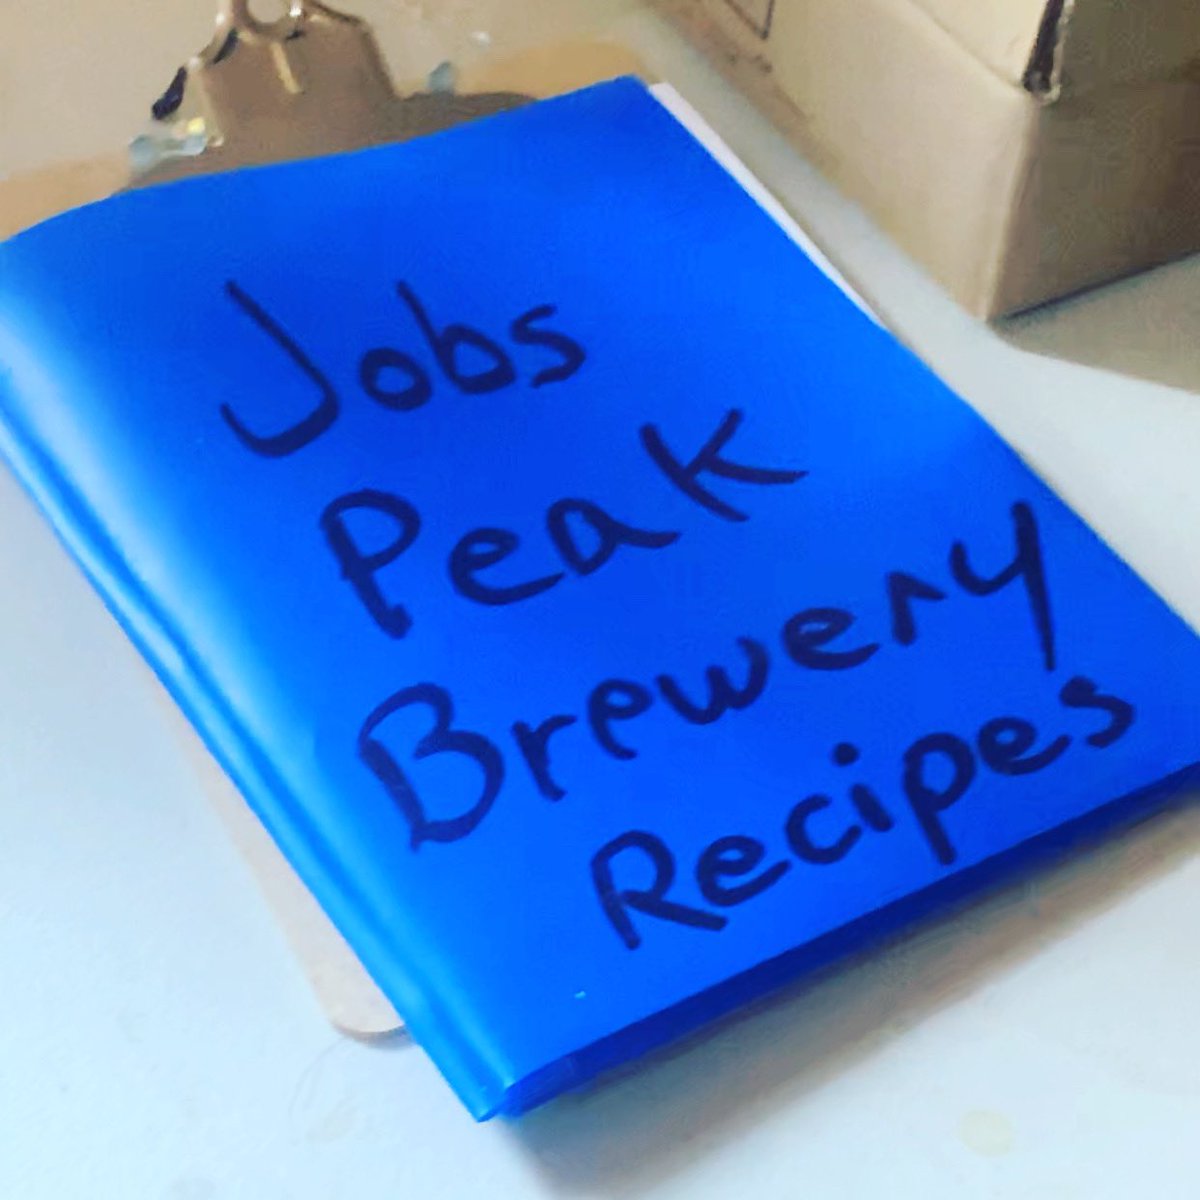 Jobs
Peak
Brewery
Recipes